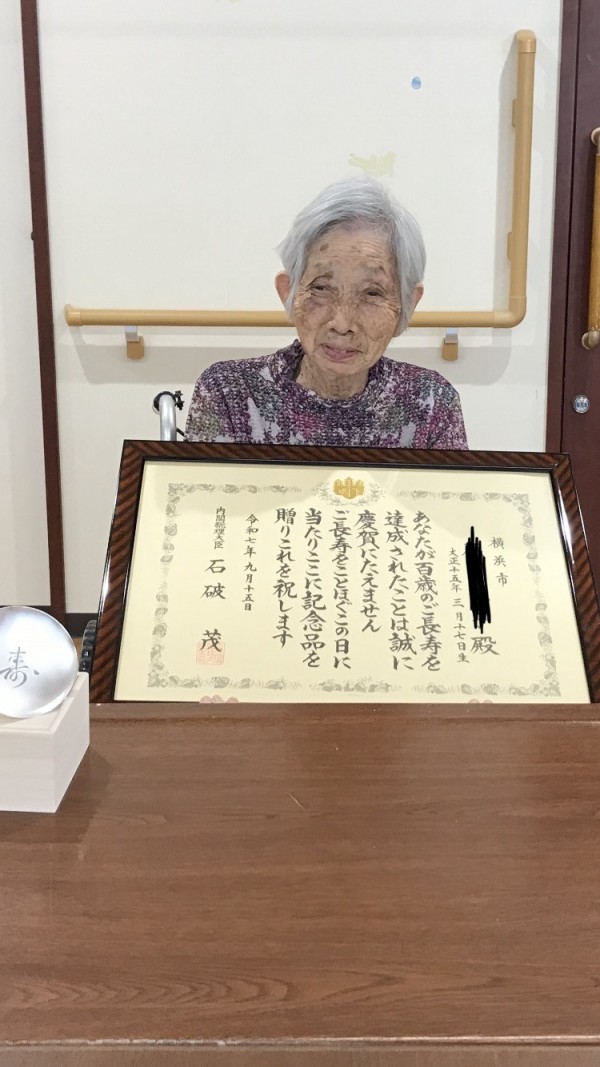 横浜市
殿
大正十五年 三月十七日生
あなたが百歳のご長寿を
達成されたことは誠に
慶賀にたえません
ご長寿をことほぐこの日に
当たりここに記念品を
贈りこれを祝します
令和七年 九月十五日
内閣総理大臣 石破 茂
寿